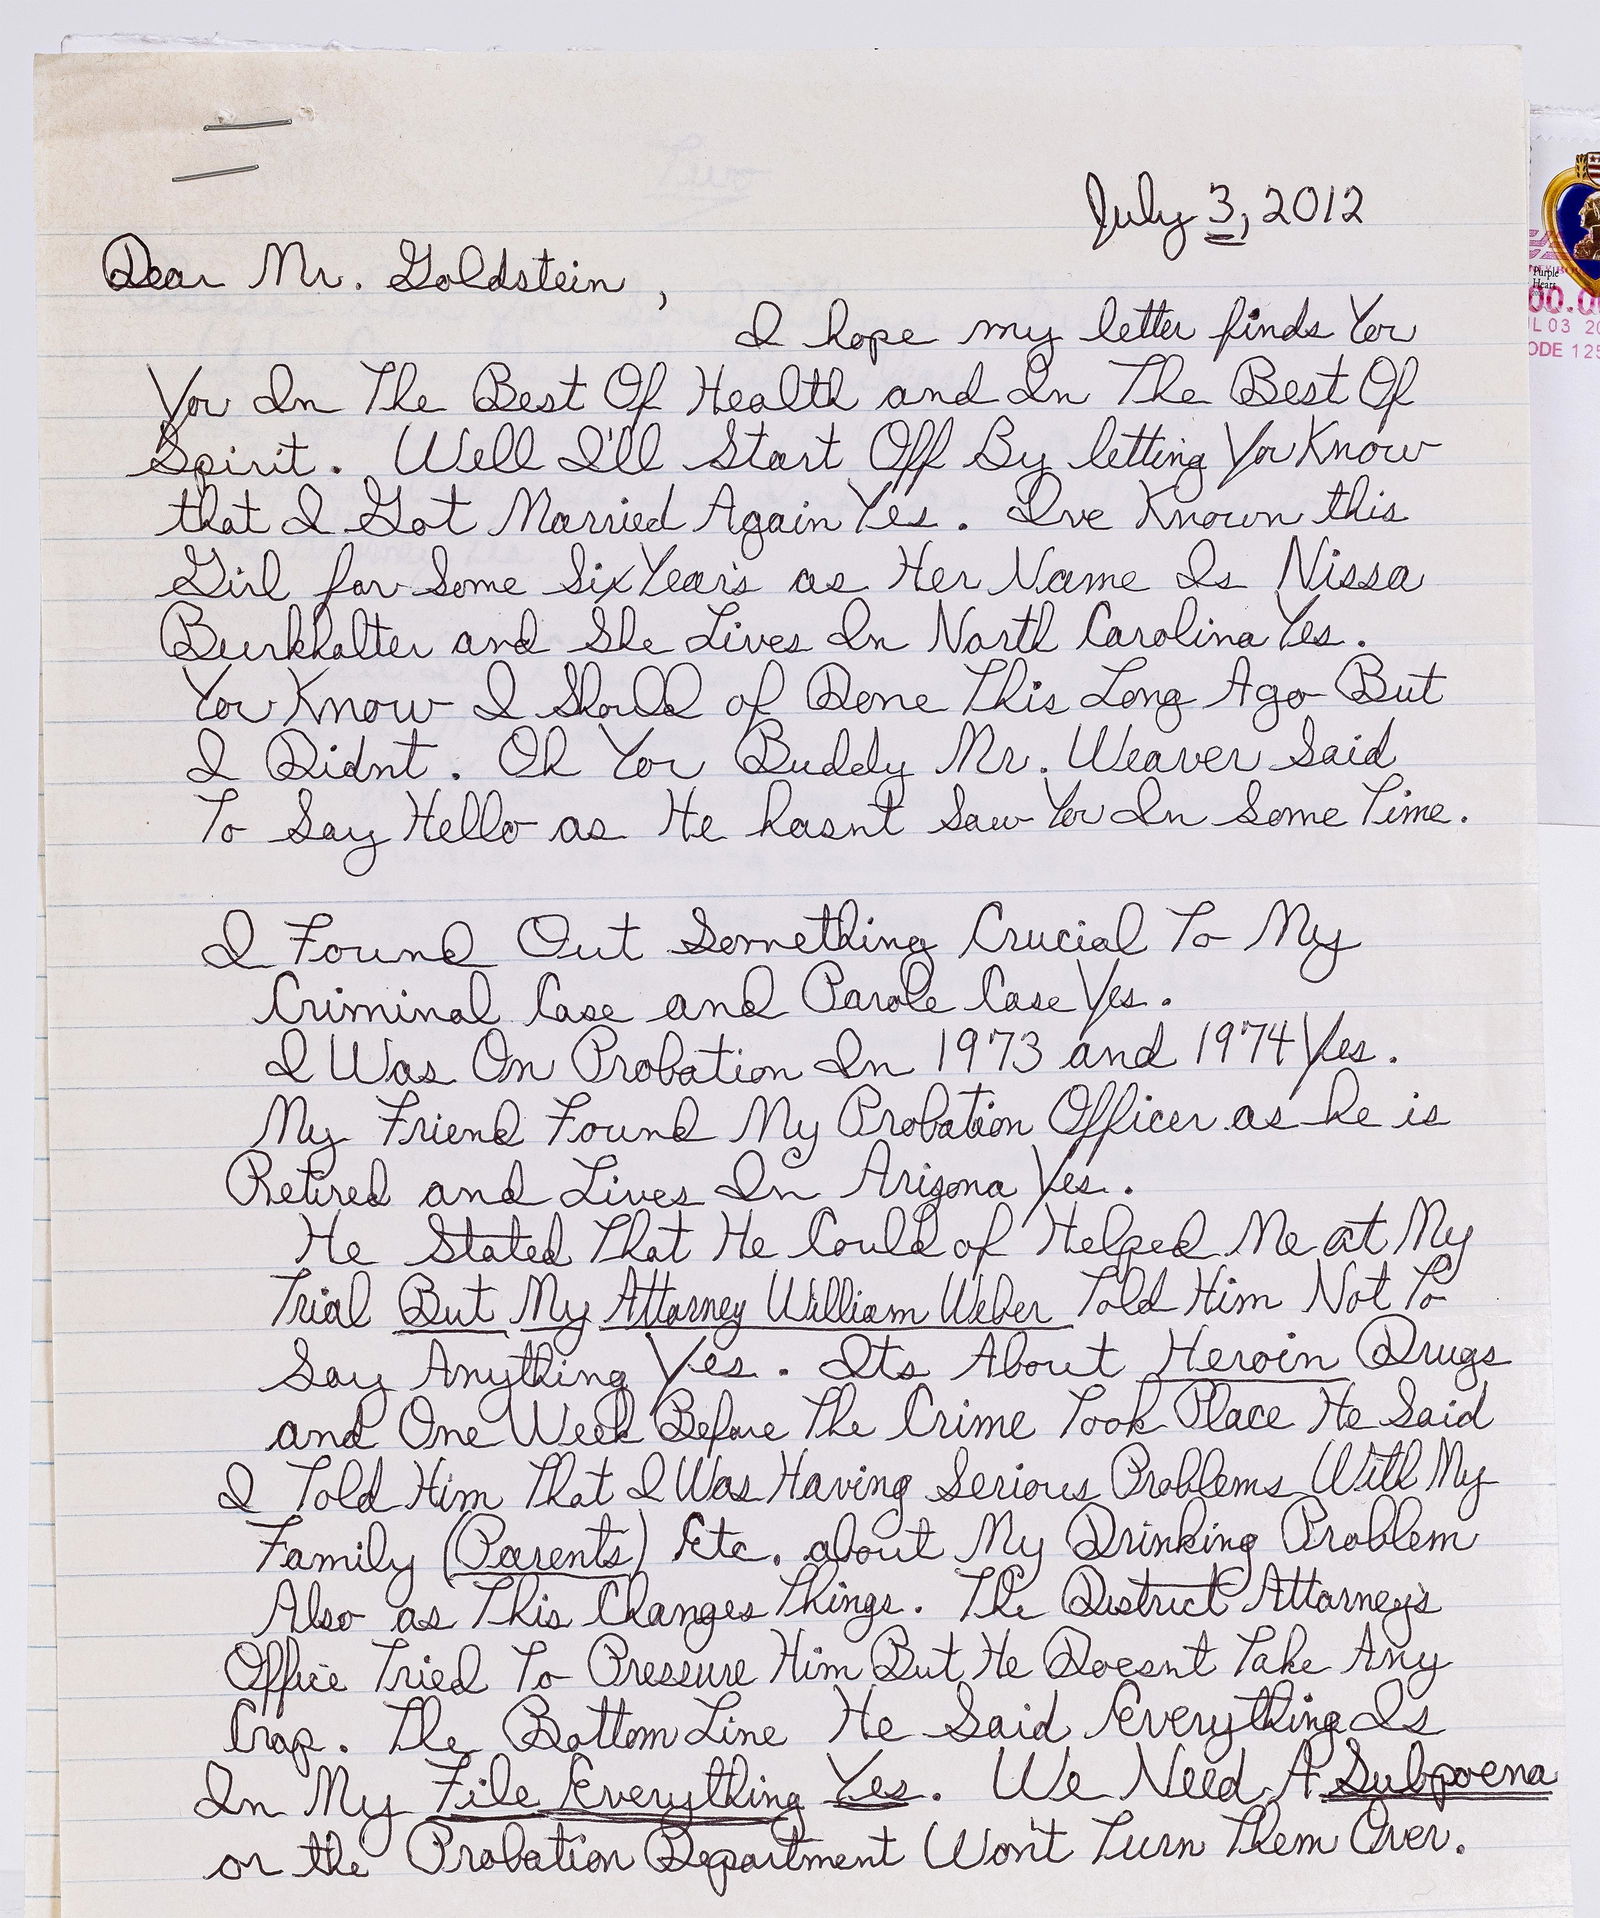 July 3, 2012
Dear Mr. Goldstein,
I hope my letter finds You
You In The Best Of Health and In The Best Of
Spirit. Well I'll Start Off By letting You Know
that I Got Married Again Yes. Ive Known this
Girl for Some Six Year's as Her Name Is Nissa
Burkhalter and She Lives In North Carolina Yes.
You Know I Should of Done This Long Ago But
I Didnt. Oh You Buddy Mr. Weaver Said
To Say Hello as He hasn't Saw You In Some Time.
I Found Out Something Crucial To My
Criminal Case and Parole Case Yes.
I Was On Probation In 1973 and 1974 Yes.
My Friend Found My Probation Officer as he is
Retired and Lives In Arizona Yes.
He Stated That He Could of Helped Me at My
Trial But My Attorney William Weber Told Him Not To
Say Anything Yes. Its About Heroin Drugs
and One Week Before The Crime Took Place He Said
I Told Him That I Was Having Serious Problems With My
Family (Parents) Etc. about My Drinking Problem
Also as This Changes Things. The District Attorney's
Office Tried To Pressure Him But He Doesnt Take Any
Crap. The Bottom Line He Said Everything Is
In My File Everything Yes. We Need A Subpoena
or the Probation Department Won't Turn Them Over.
Purple
Heart
00.0
L 03 20
ODE 125